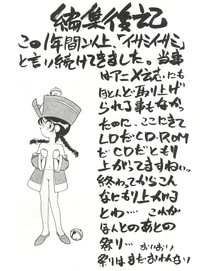 編集後記
この1年間以上、「イサミイサミ」
と言い続けてきました。当時
はアニメ誌にも
ほとんど取り上げ
られる事もなかっ
たのに、ここにきて
LDだCD-ROM
だCDだともり
上がってますねぃ。
終わってからこん
なにもり上がる
とわ… これが
ほんとのあとの
祭り… おいおい
祭りはまだおわんない